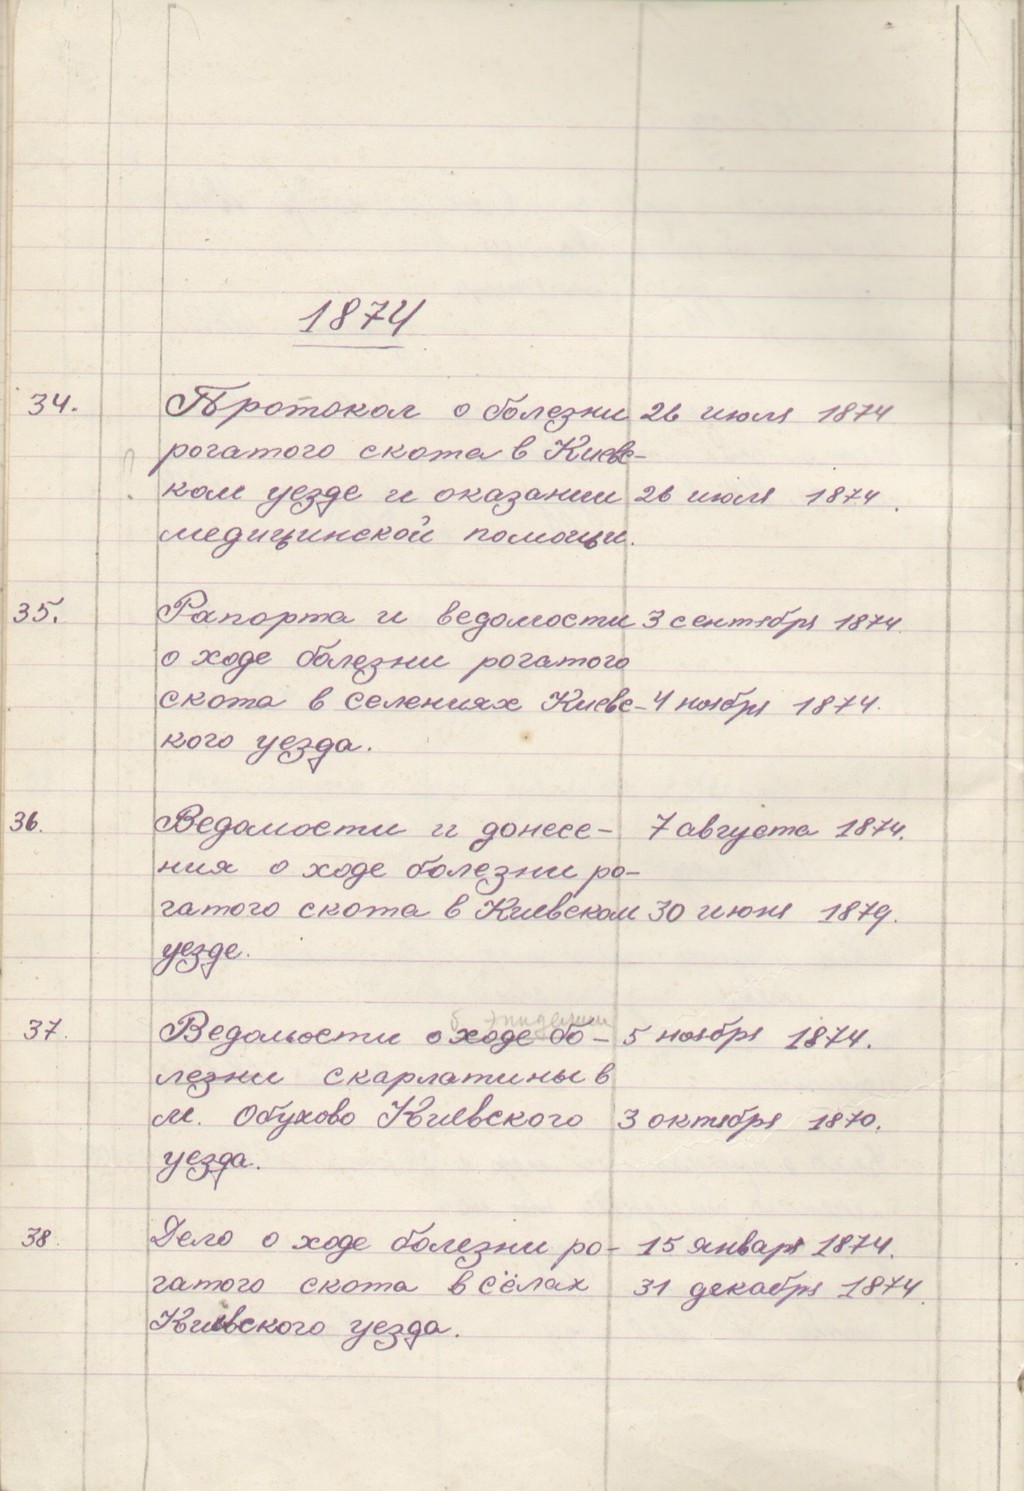 1874
34. Протокол о болезни 26 июля 1874
рогатого скота в Киевс-
ком уезде и оказании 26 июля 1874.
медицинской помощи.
35. Рапорта и ведомости 3 сентября 1874.
о ходе болезни рогатого
скота в селениях Киевс- 4 ноября 1874.
кого уезда.
36. Ведомости и донесе- 7 августа 1874.
ния о ходе болезни ро-
гатого скота в Киевском 30 июня 1879.
уезде.
эпидемии
37. Ведомости о ходе бо- 5 ноября 1874.
лезни скарлатины в
м. Обухово Киевского 3 октября 1870.
уезда.
38. Дело о ходе болезни ро- 15 января 1874.
гатого скота в сёлах 31 декабря 1874.
Киевского уезда.